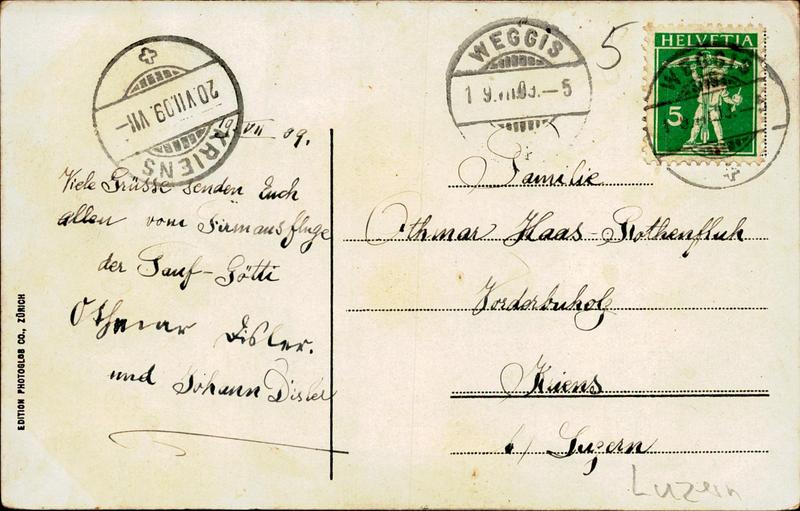 WEGGIS
1 9.VII.09.—5
5
HELVETIA
5
WEGGIS
20.VII.09.VII—
KRIENS
19. VII 09.
Viele Grüsse senden Euch
allen vom Firmausfluge
der Tauf-Götti
Othmar Disler.
und Johann Disler
Familie
Othmar Haas-Rothenfluh
Vorderbuholz
Kriens
b/ Luzern
Luzern
EDITION PHOTOGLOB CO., ZÜRICH